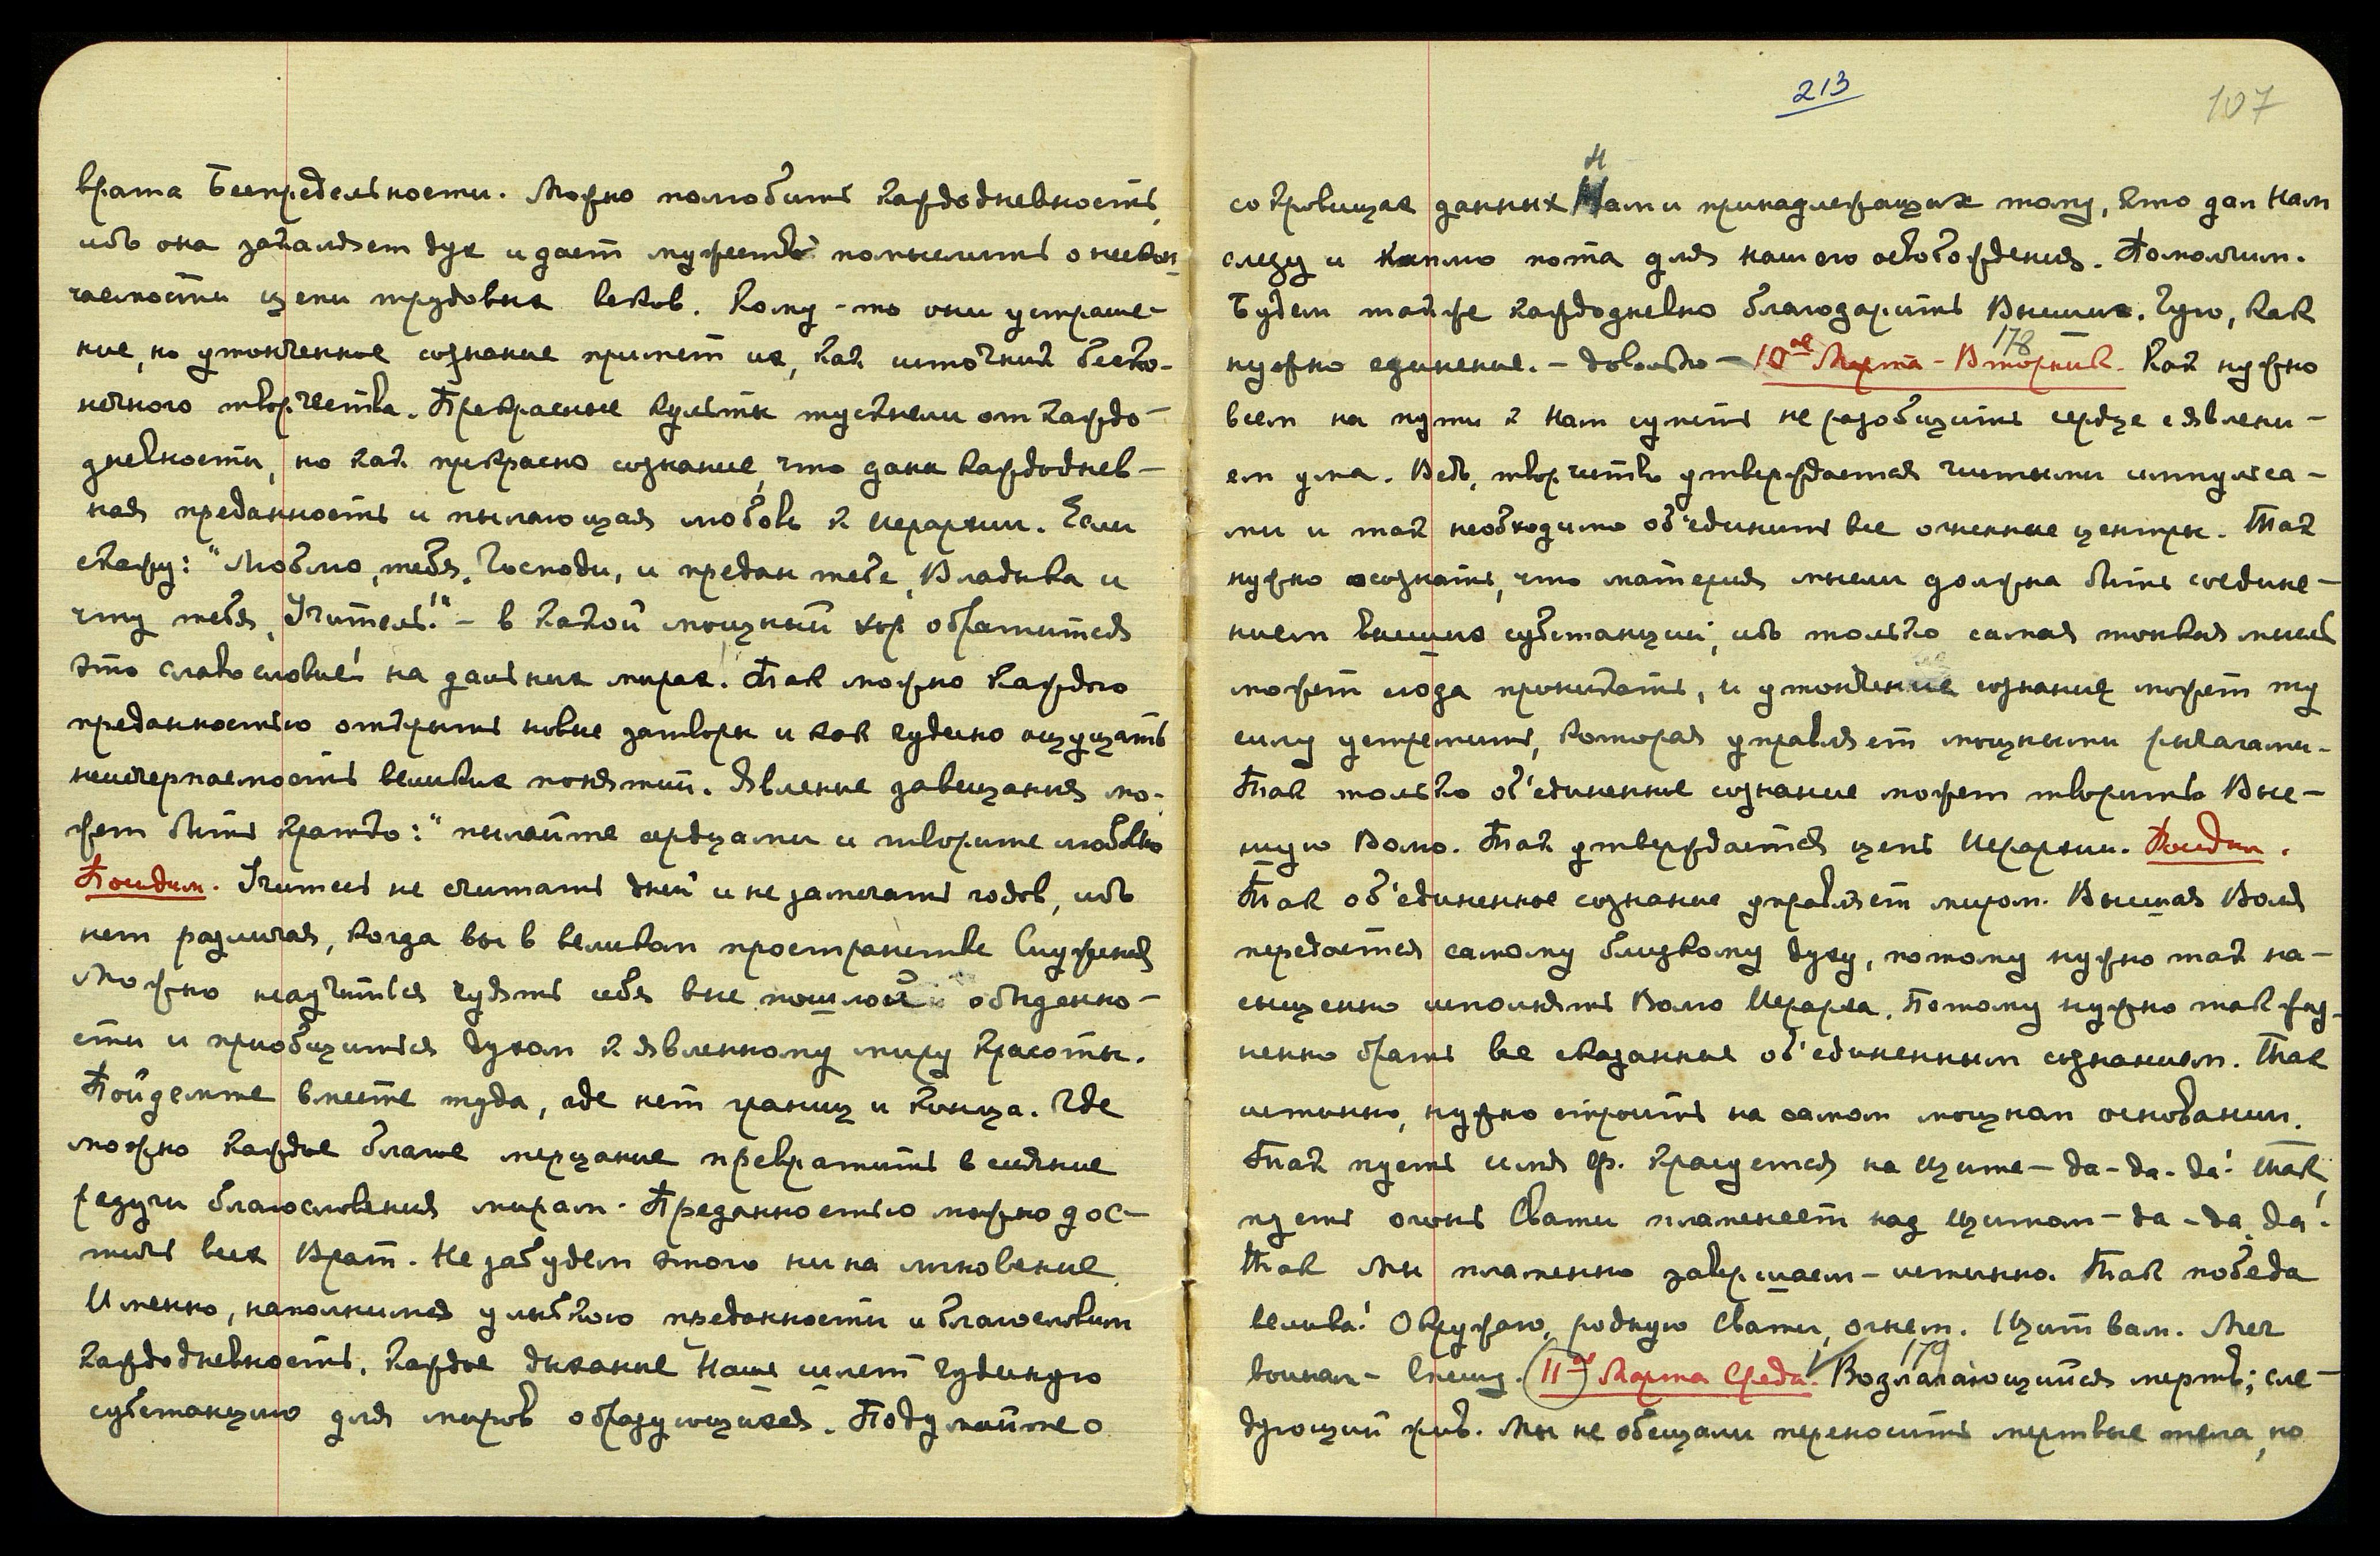 врата Беспредельности. Можно полюбить каждодневность,
ибо она закаляет дух и дает мужество помыслить о нескон-
чаемости цепи трудовых веков. Кому-то они устраше-
ние, но утонченное сознание примет их, как источник беско-
нечного творчества. Прекрасные культы тускнели от каждо-
дневности, но как прекрасно сознание, что дана каждоднев-
ная преданность и пылающая любовь к Иерархии. Если
скажу: "Люблю, тебя, Господи, и предан тебе, Владыка и
чту тебя, Учитель!" - в какой мощный хор обратится
это славословие! на дальних мирах! Так можно каждою
преданностью открыть новые затворы и как чудесно ощущать
неисчерпаемость великих понятий. Явление завещания мо-
жет быть кратко: "пылайте сердцами и творите любовью
Поидим. Учитесь не считать дней и не замечать годов, ибо
нет различая, когда вы в великом пространстве Служения
Можно научиться чуять себя вне пошлой обыденно-
сти и приобщиться духом к явленному миру Красоты.
Пойдемте вместе туда, где нет границ и конца. Где
можно каждое благое мерцание превратить в сияние
радуги благословения мирам. Преданностью можно дос-
тичь всех Врат. Не забудем этого ни на мгновение
Именно, наполнимся улыбкою преданности и благословим
каждодневность. Каждое дыхание Наше шлет чудесную
субстанцию для миров образующихся. Подумайте о
213
107
сокровищах данных Нами и принадлежащих тому, кто дал Нам
слезу и каплю пота для нашего освобождения. Помолчим.
Будем также каждодневно благодарить Высших. Чую, как
нужно единение. - довольно - 10ое Марта - Вторник. 178 Как нужно
всем на пути к Нам суметь не разобщить сердце с явлени-
ем ума. Ведь, творчество утверждается чистыми импульса-
ми и так необходимо об'единить все огненные центры. Так
нужно осознать, что материя мысли должна быть соедине-
нием высших субстанций, ибо только самая тонкая мысль
может сюда проникать, и утонченное сознание может ту
силу устремить, которая управляет мощными рычагами.
Так только об'единенное сознание может творить Выс-
шую Волю. Так утверждается цепь Иерархии. Поидим.
Так об'единенное сознание управляет миром. Высшая Воля
передается самому близкому духу, потому нужно так на-
сыщенно исполнять Волю Иерарха. Потому нужно так жиз-
ненно брать все сказанные об'единенным сознанием. Так
истинно, нужно строить на самом мощном основании.
Так пусть имя Ф. красуется на щите - да - да - да! Так
пусть огонь Свати пламенеет над щитом - да - да, да!
Так Мы пламенно завершаем - истинно. Так победа
велика! Окружаю, родную Свати, огнем. Щит вам. Меч
воинам - Спешу. 11ое Марта Среда. 179 Возлагающийся мертв; сле-
дующий жив. Мы не обещали переносить мертвые тела, но